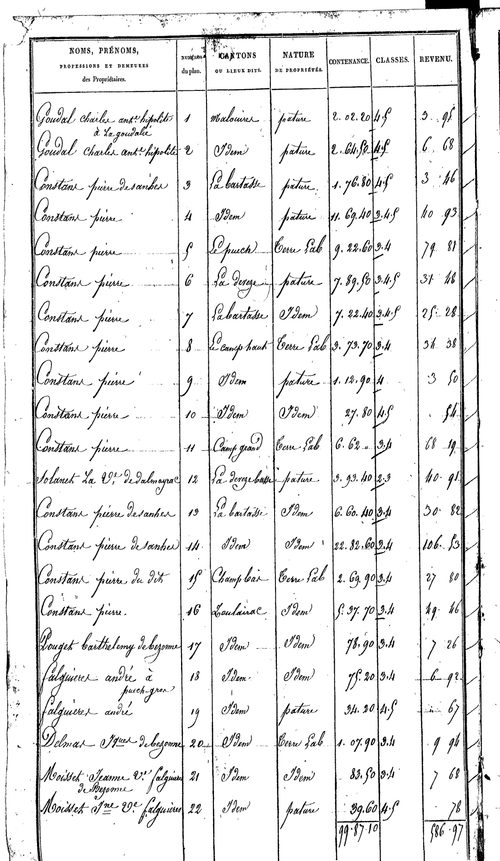 NOMS, PRÉNOMS, PROFESSIONS ET DEMEURES des Propriétaires. NUMÉROS du plan. CANTONS OU LIEUX DITS. NATURE DE PROPRIÉTÉS. CONTENANCE. CLASSES. REVENU.
Goudal charles ant.e hipolite 1 Maloures pature 2. 02. 20 4.5 3 95
à La goudalie
Goudal charles ant.e hipolite 2 Idem pature 2. 64. 50 4.5 6 68
Constans pierre de sanhes 3 La bartasse pature 1. 76. 80 4.5 3 46
Constans pierre 4 Idem pature 11. 69. 40 3.4.5 40 93
Constans pierre 5 Le puech Terre Lab 9. 22. 60 3.4 79 81
Constans pierre 6 La deveze pature 7. 89. 50 3.4.5 31 48
Constans pierre 7 La bartasse Idem 7. 22. 40 3.4.5 25 28
Constans pierre 8 Le camp haut Terre Lab 3. 73. 70 3.4 34 38
Constans pierre 9 Idem pature 1. 12. 90 4 3 50
Constans pierre 10 Idem Idem 27. 80 4.5 54
Constans pierre 11 Camp grand Terre Lab 6. 62 3.4 68 19
Solanet La Ve. de dalmayrac 12 La deveze basse pature 3. 93. 40 2.3 40 91
Constans pierre de sanhes 13 La bartasse Idem 6. 60. 40 3.4 30 82
Constans pierre de sanhes 14 Idem Idem 22. 82. 60 3.4 106. 53
Constans pierre du dit 15 Champ bas Terre Lab 2. 69. 90 3.4 27 80
Constans pierre. 16 Idem 5. 37. 70 3.4 49 46
Pouget barthelemy de bezonne 17 Idem Idem 78. 90 3.4 7 26
falguieres andré à 18 Idem Idem 75. 20 3.4 6 92
puech gros
falguieres andré 19 Idem pature 34. 20 4.5 67
Delmas Jques de bezonne 20 Idem Terre Lab 1. 07. 90 3.4 9 94
Moisset Jeanne Ve. falguieres 21 Idem Idem 83. 50 3.4 7 68
de Bezonne
Moisset Jne Ve. falguieres 22 Idem pature 39. 60 4.5 78
99. 87. 10 586. 97